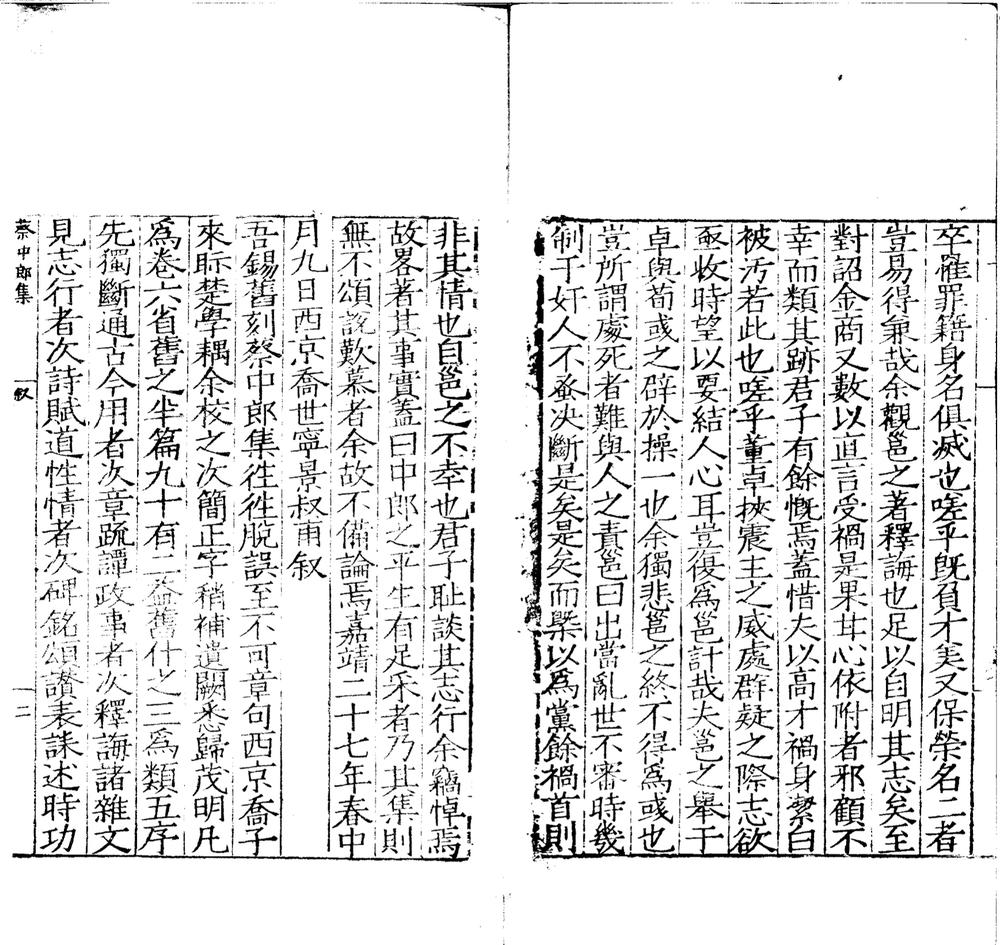 卒罹罪籍身名俱滅也嗟乎旣負才美又保榮名二者
豈易得兼哉余觀邕之著釋誨也足以自明其志矣至
對詔金商又數以直言受禍是果甘心依附者邪顧不
幸而類其跡君子有餘慨焉蓋惜夫以高才禍身絜白
被汚若此也嗟乎董卓挾震主之威處群疑之際志欲
亟收時望以要結人心耳豈復爲邕計哉夫邕之舉于
卓與荀彧之辟於操一也余獨悲邕之終不得爲彧也
豈所謂處死者難與人之責邕曰出當亂世不審時幾
制于奸人不蚤决斷是矣是矣而槩以爲黨餘禍首則
非其情也自邕之不幸也君子耻談其志行余竊悼焉
故畧著其事實蓋曰中郎之平生有足采者乃其集則
無不頌說歎慕者余故不備論焉嘉靖二十七年春中
月九日西京喬世寧景叔甫叙
吾錫舊刻蔡中郎集徃徃脫誤至不可章句西京喬子
來眎楚學耦余校之次簡正字稍補遺闕悉歸茂明凡
爲卷六省舊之半篇九十有二益舊什之三爲類五序
先獨斷通古今用者次章疏譚政事者次釋誨諸雜文
見志行者次詩賦道性情者次碑銘頌讚表誄述時功
蔡中郎集 叙 二